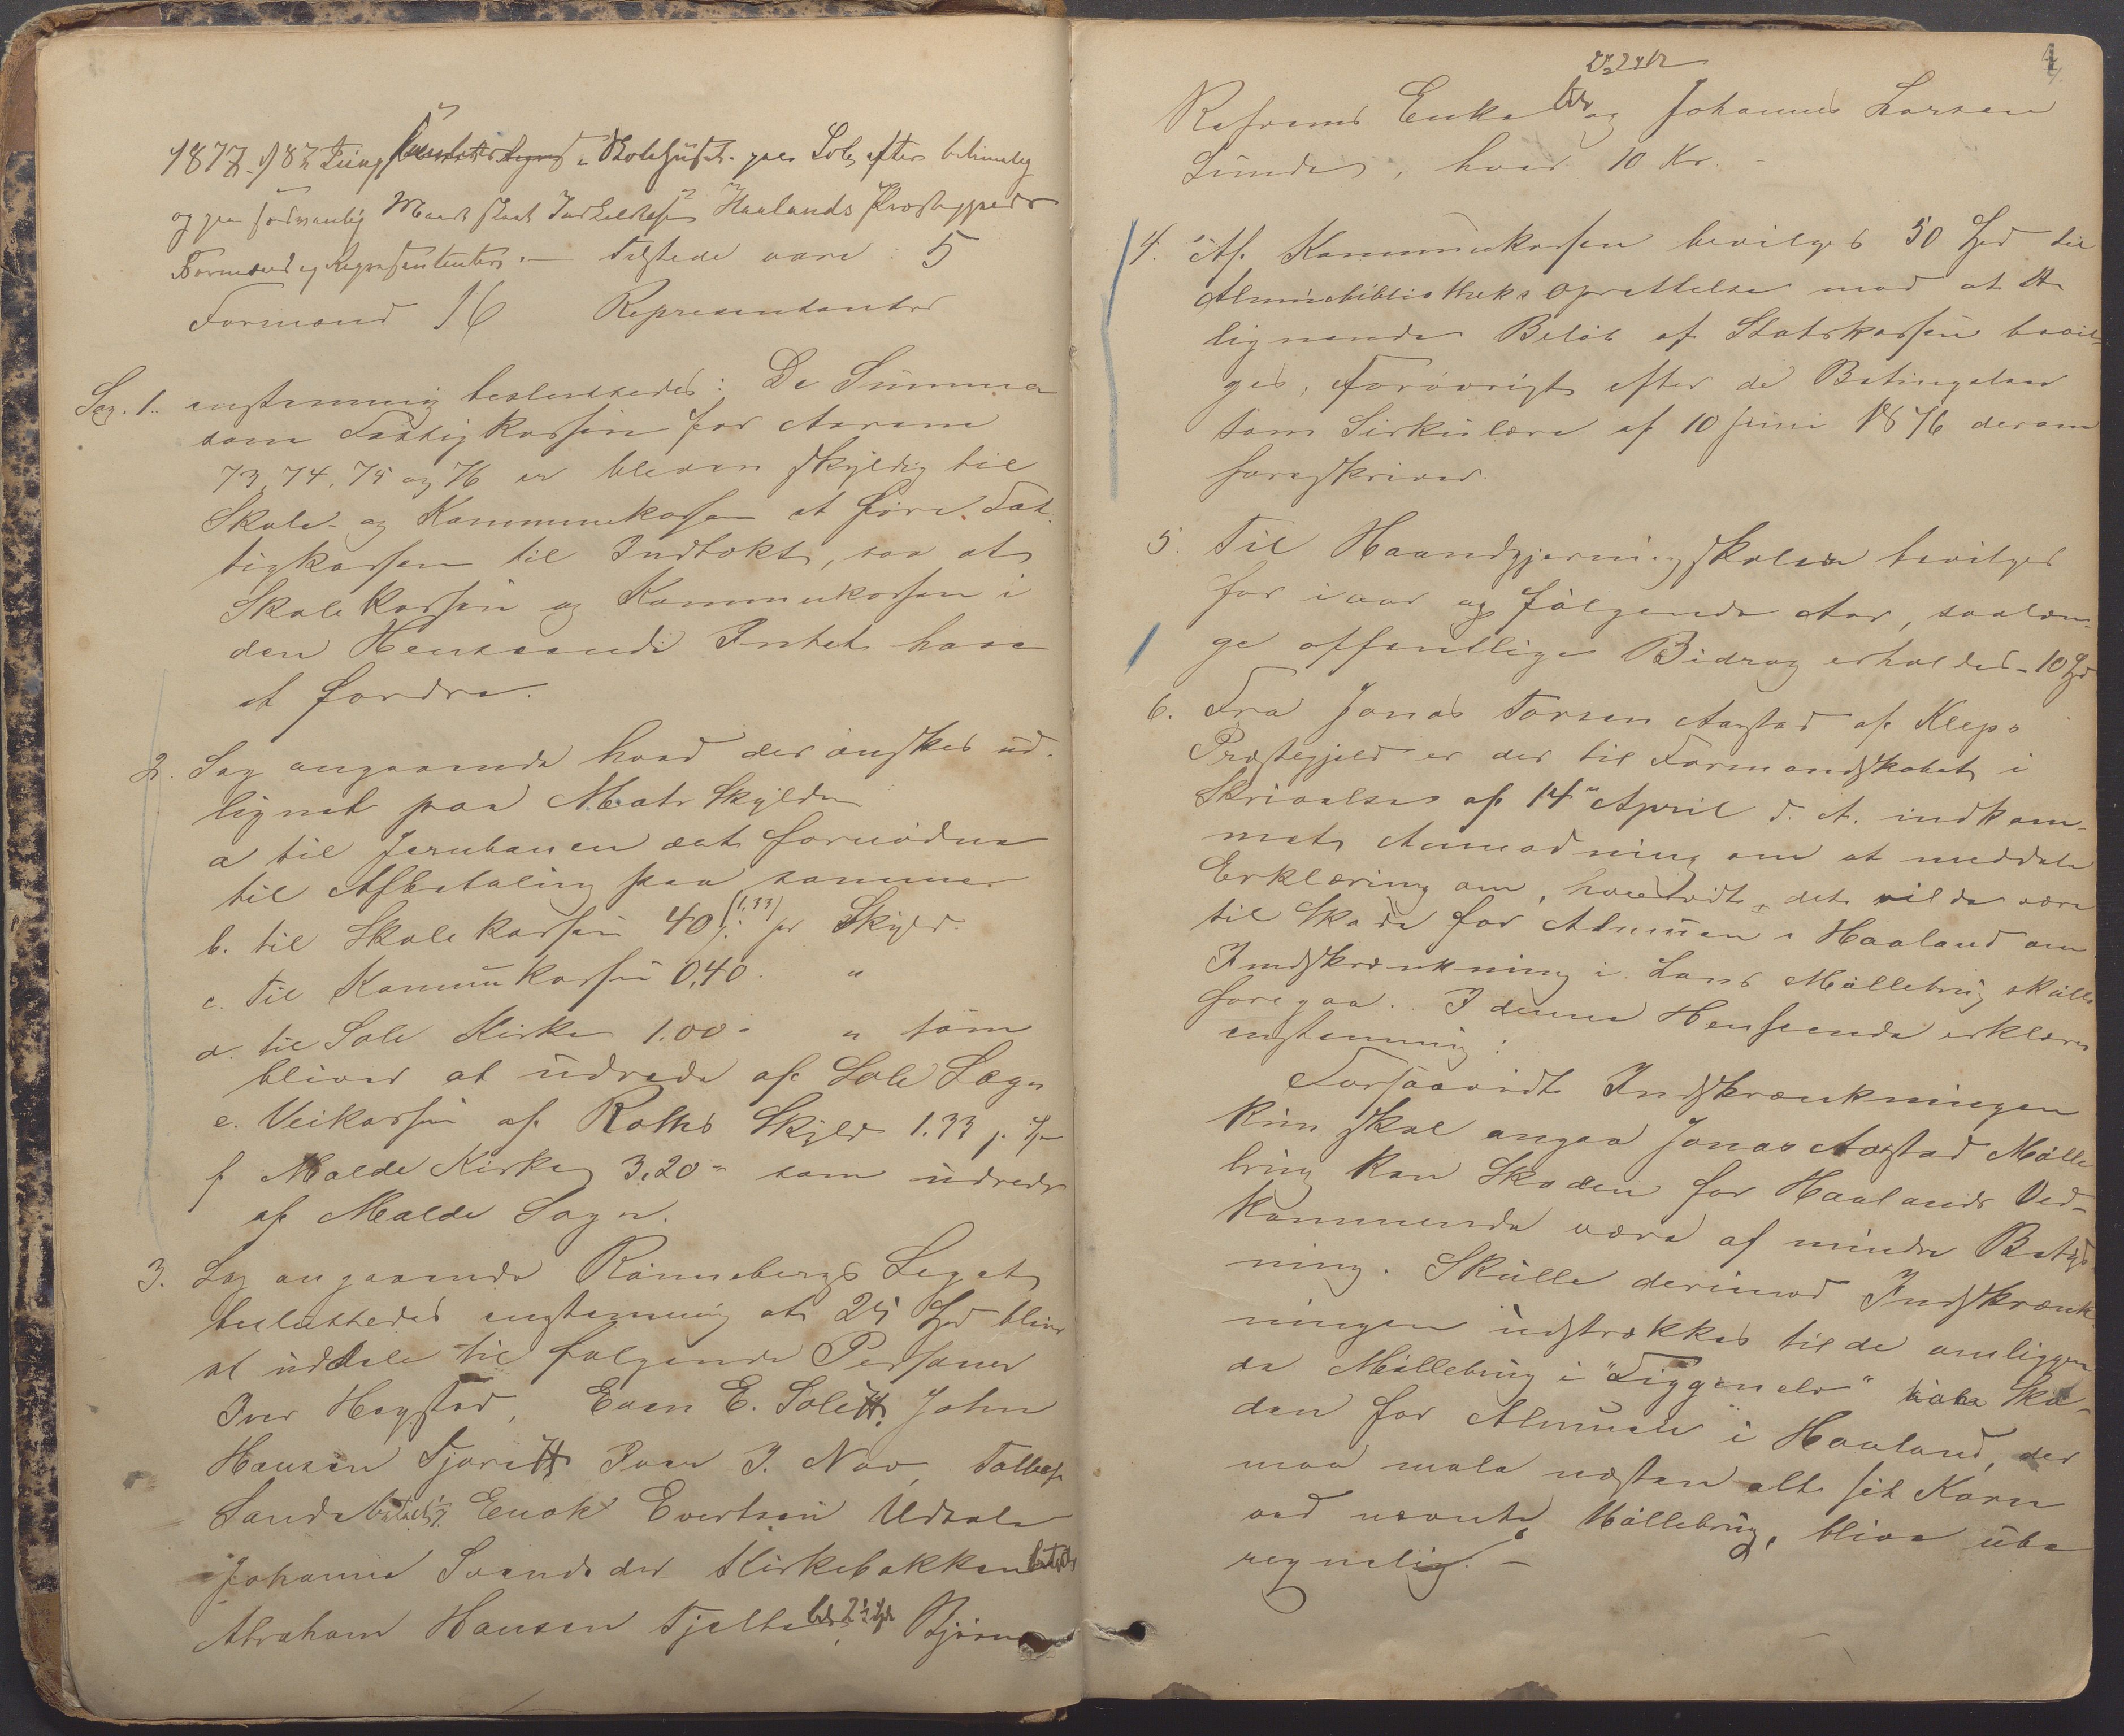 1877 18/7 i Skolehuset paa Sole efter
og paa sædvanlig Maade Haalands Præstegjelds
Formænd og Repræsentanter. — Tilstede vare 5
Formænd 16 Representanter
Sag. 1. enstemmig besluttedes: De Summer
som Fattigkassen for Aarene
73, 74, 75 og 76 er bleven skyldig til
Skole- og Kommunekassen at føre Fat-
tigkassen til Indtækt, saa at
Skolekassen og Kommunekassen i
den Henseende Intet have
at fordre.
2. Sag angaaende hvad der ønskes ud-
lignet paa Matr Skylden
a til Jernbanen det fornødne
til Afbetaling paa samme
b. til Skolekassen 40 (1,33) pr Skyld.
c. Til Kommunekassen 0,40. "
d. til Sole Kirke 1.00 " som
bliver at udrede af Sole Sogn
e. Veikassen af Skyld 1.33 p.
f Malde Kirke 3,20 som udredes
af Malde Sogn.
3. Sag angaaende Rønnebergs Legat
besluttedes enstemmig at 25 bliver
at uddele til følgende Personer
Iver Hogstad, Even E. Sole, John
Hansen Tjora Iver I. Næo,
Sande betalt Enok Evertsen Udsola
Johanne Svendsdr Kirkebakken betalt
Abraham Hansen Tjelta Bjørn
Refsnes Enke og Johannes Larsen
Sunde, hver 10 Kr. —
4. Af Kommunekassen bevilges 50 til
Almuebibliotheks oprettelse mod at et
lignende Beløb af Statskassen bevil-
ges, Forøvrigt efter de Betingelser
som Sirkulære af 10 Juni 1876 derom
foreskriver.
5. Til Haandgjerningskolen bevilges
for iaar og følgende Aar, saalæn-
ge offentlige Bidrag erholdes - 10
6. Fra Jonas Torsen Aarstad af Klepp
Præstegjeld er der til Formandskabet i
Skrivelse af 14 April d. A. indkom-
met Anmodning om at meddele
Erklæring om, hvorvidt det vilde være
til Skade for Almuen i Haaland om
Indskrænkning i Lans Møllebrug skulle
foregaa. I denne Henseende erklæres
enstemmig:
Forsaavidt Indskrænkningen
kun skal angaa Jonas Aarstad Mølle
brug kan Skaden for Haalands Ved-
kommende være af mindre Betyd-
ning. Skulle derimod Indskrænk
ningen udstrækkes til de omliggen
de Møllebrug i "Figgenelv" Ska-
den for Almuen i Haaland, der
maa male næsten alt sit Korn
ved nævnte Møllebrug, blive ube
regnelig. —